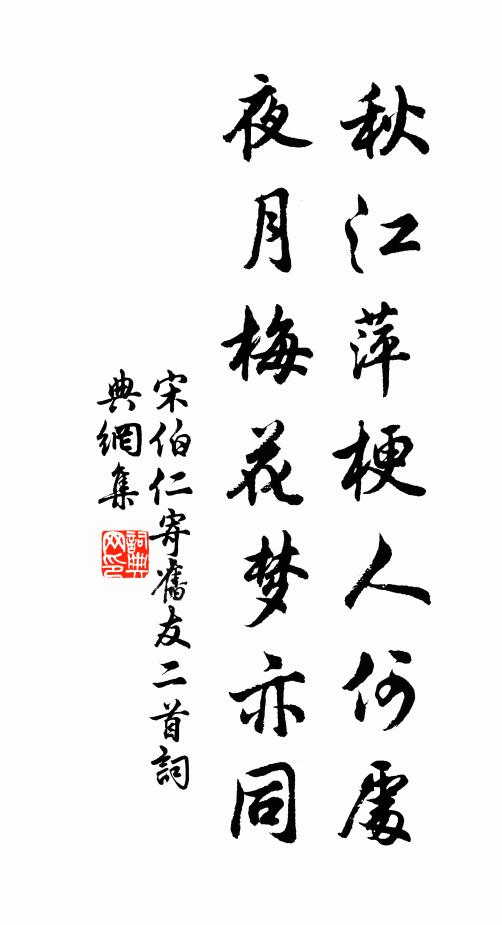 秋江萍梗人何處
夜月梅花梦亦同
宋伯仁寄舊友二首詞
典網集
詞典网印